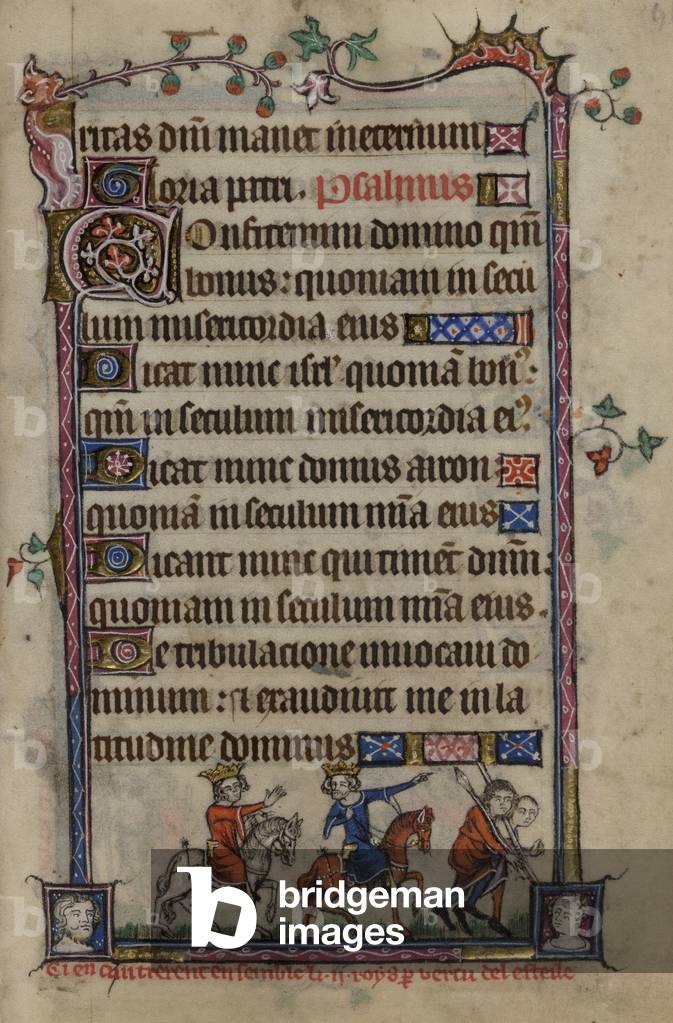 ritas dñi manet ineternum
Gloria patri. Psalmus
Confitemini domino qm̃
bonus: quoniam in secu
lum misericordia eius
Dicat nunc isrl' quoniã bon9:
qm̃ in seculum misericordia ei9.
Dicat nunc domus aaron:
quoniã in seculum mĩa eius
Dicant nunc qui timẽt dñm:
quoniam in seculum mĩa eius.
De tribulacione inuocaui do
minum: et exaudiuit me in la
titudine dominus
bridgeman
images
Ci encuntrerent ensemble li .ii. roys p vertu del esteile